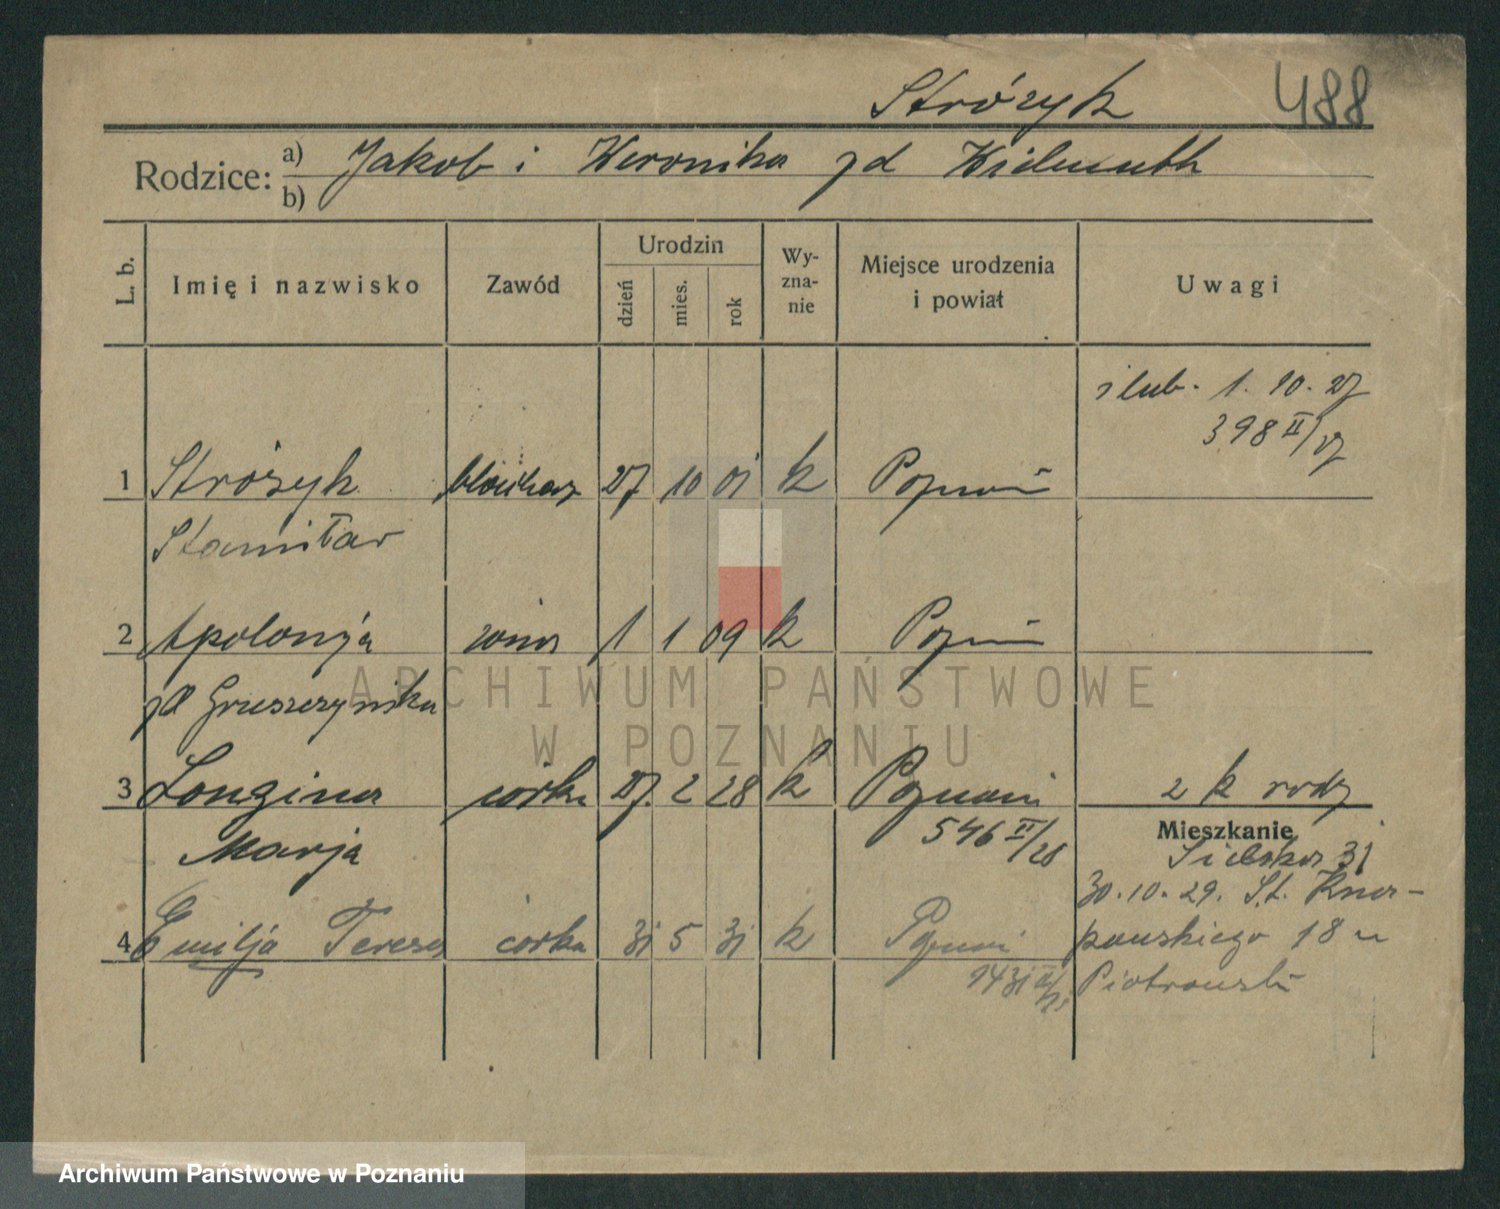 Stróżyk 488
Rodzice: a) Jakob i Weronika zd Widemuth
b)
L. b. Imię i nazwisko Zawód Urodzin Wy-zna-nie Miejsce urodzenia i powiat Uwagi
dzień mies. rok
ślub. 1. 10. 27
398 II/27
1 Stróżyk blacharz 27 10 01 k Poznań
Stanisław
2 Apolonja żona 1 1 09 k Poznań
zd Gruszczyńska
3 Longina córka 27. 2 28 k Poznań 2 k rodz
Marja 546 II/28
Mieszkanie
Sielska 31
30. 10. 29. St. Kna-
4 Emilja Teresa córka 31 5 31 k Poznań powskiego 18 u
1431 II/31 Piotrowski
ARCHIWUM PAŃSTWOWE
W POZNANIU
Archiwum Państwowe w Poznaniu